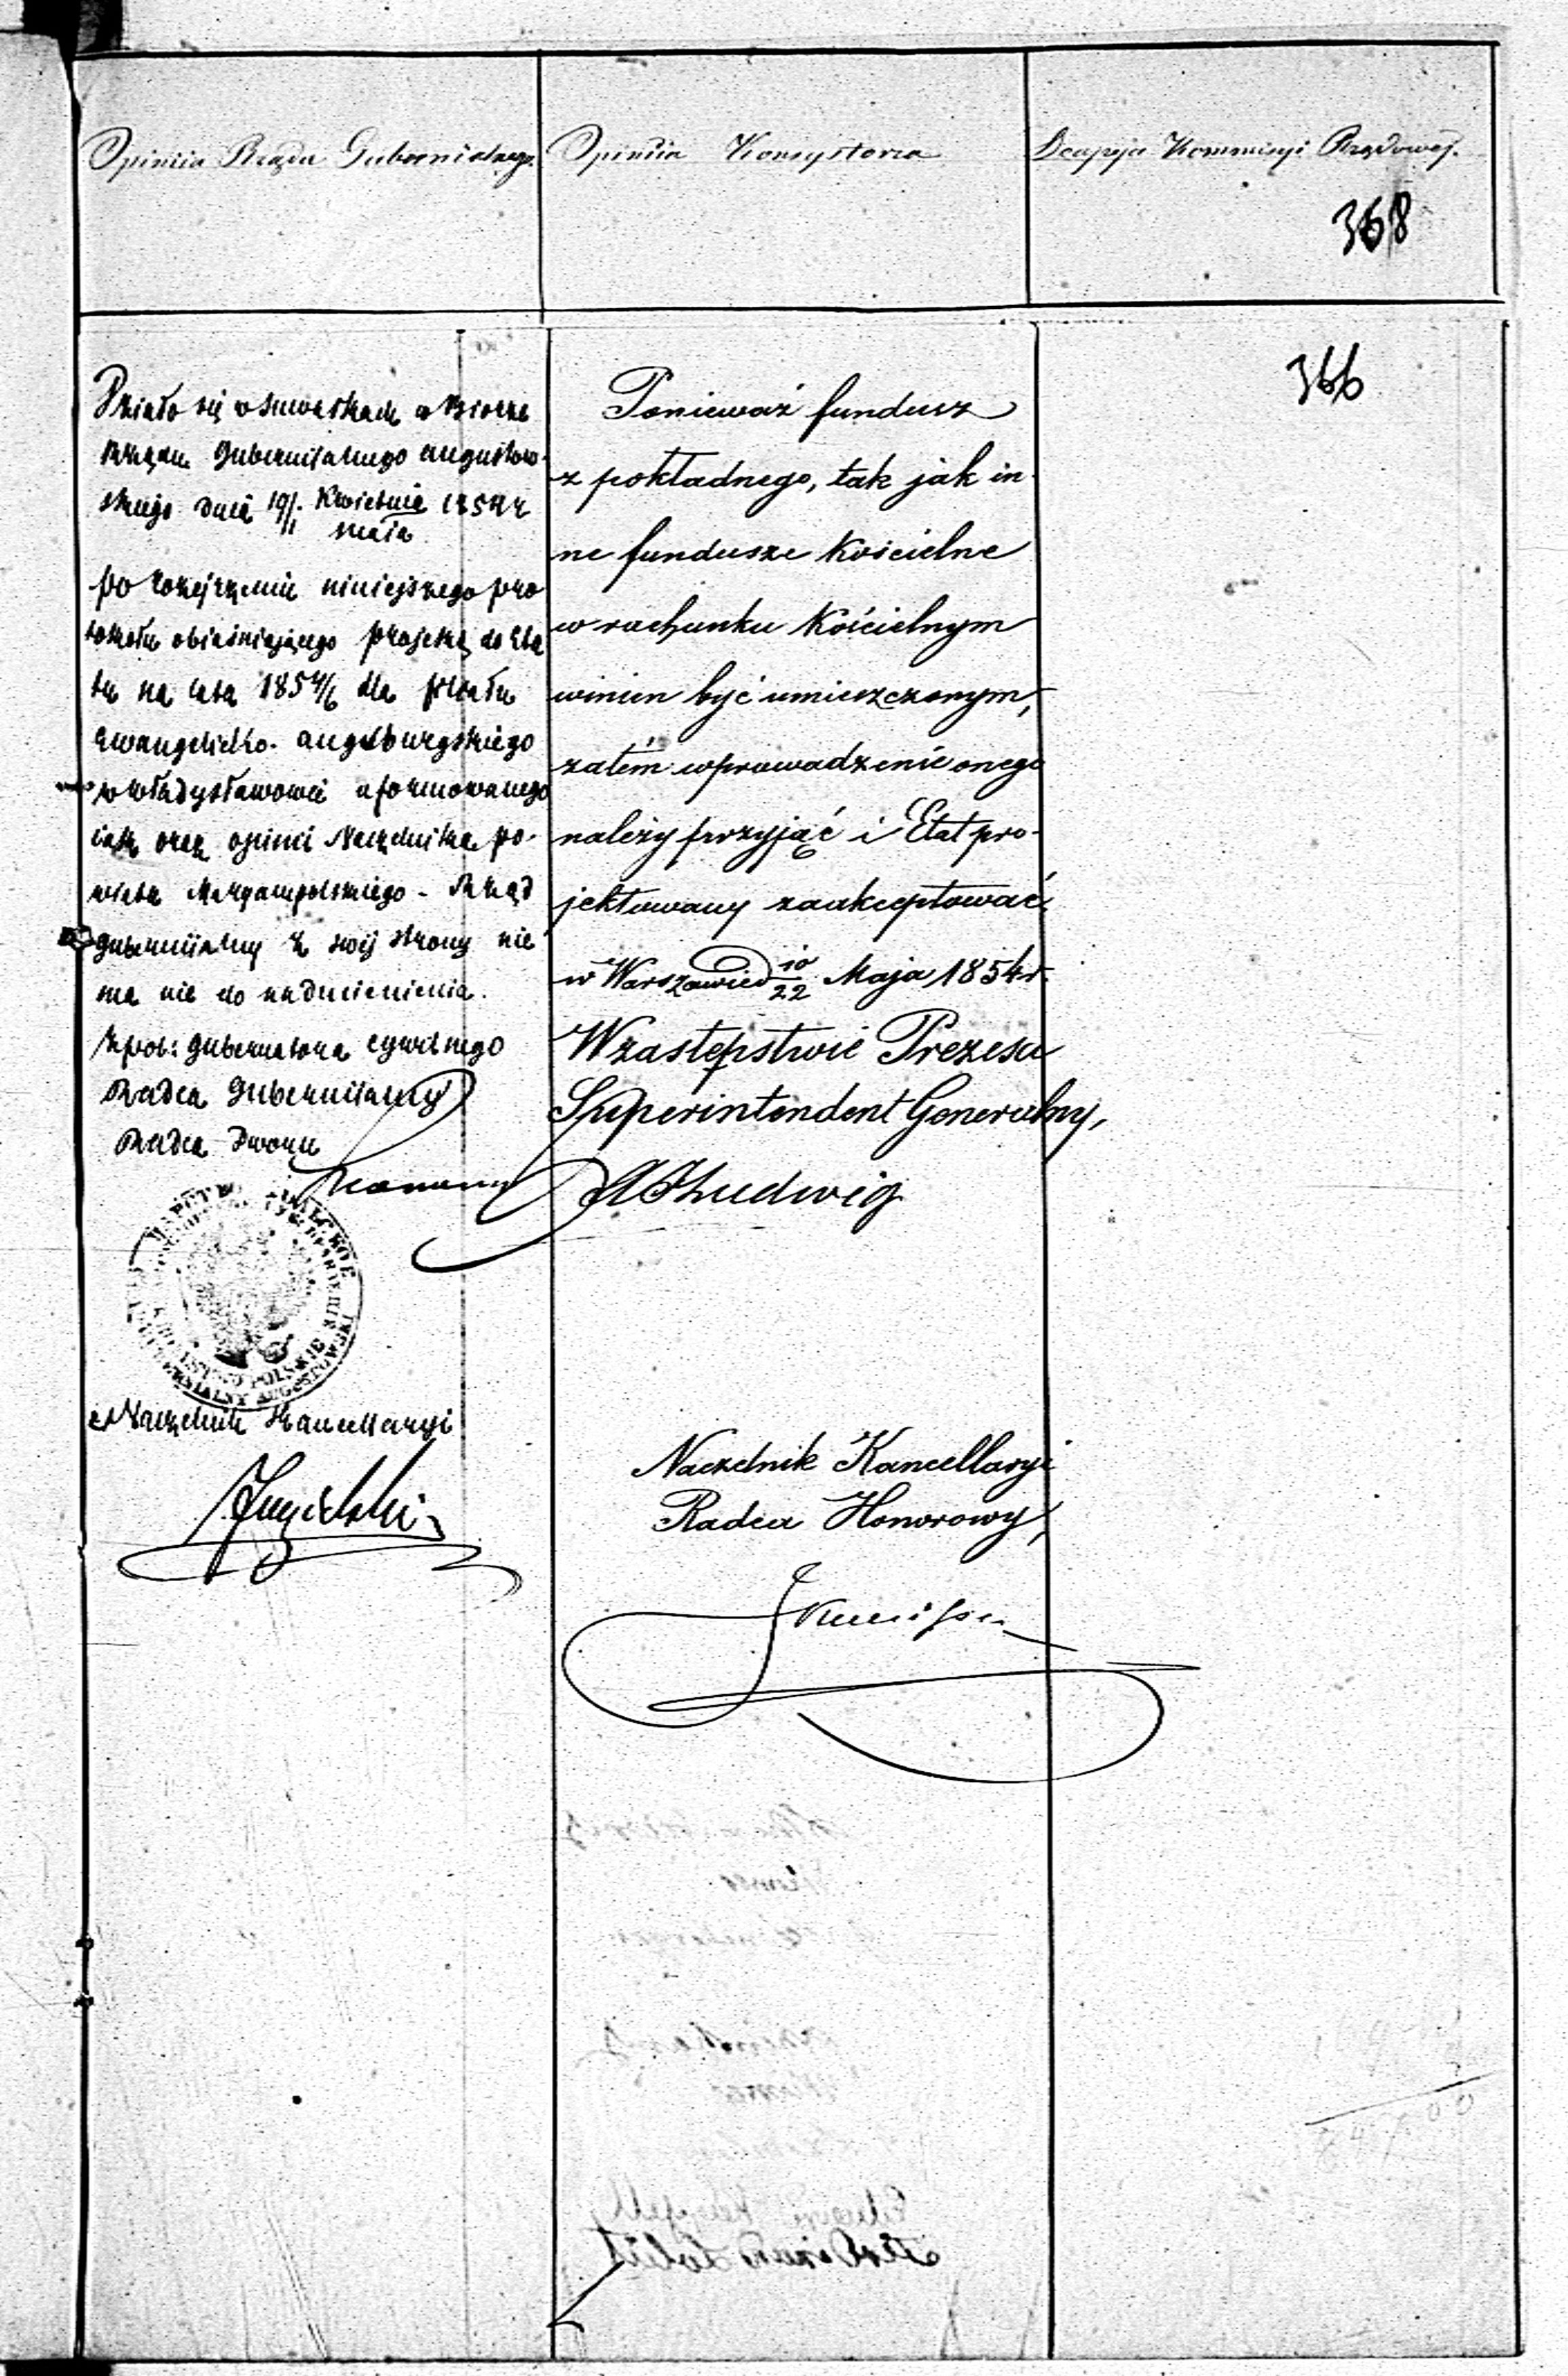 Opiniia Rządu Gubernialnego.
Opiniia Konsystorza
Decyzja Kommisyi Rządowej.
368
366
Działo się w Suwałkach w Biorze
Rządu Gubernialnego Augustow-
skiego dnia 19/1 Kwietnia/Maja 1854 r
po rozejrzeniu niniejszego pro
tokołu obiaśniającego projekt do Eta
tu na lata 1854/6 dla filiału
Ewangelicko-augsburgskiego
w Władysławowie uformowanego
iako oraz opinii Naczelnika po-
wiatu Maryampolskiego - Rząd
gubernialny z swej strony nie
ma nic do nadmienienia.
gubernatora cywilnego
Radca Gubernialny
Radca Dworu
KRÓLESTWO POLSKIE
RZĄD GUBERNIALNY AUGUSTOWSKI
Naczelnik Kancellaryi
Ponieważ fundusz
z pokładnego, tak jak in-
ne fundusze kościelne
w rachunku kościelnym
winien być umieszczonym,
zatém wprowadzenie onego
należy przyjąć i Etat pro-
jektowany zaakceptować.
w Warszawie d 10/22 Maja 1854 r.
W zastępstwie Prezesa
Superintendent Generalny,
Ludwig
Naczelnik Kancellaryi
Radca Honorowy,